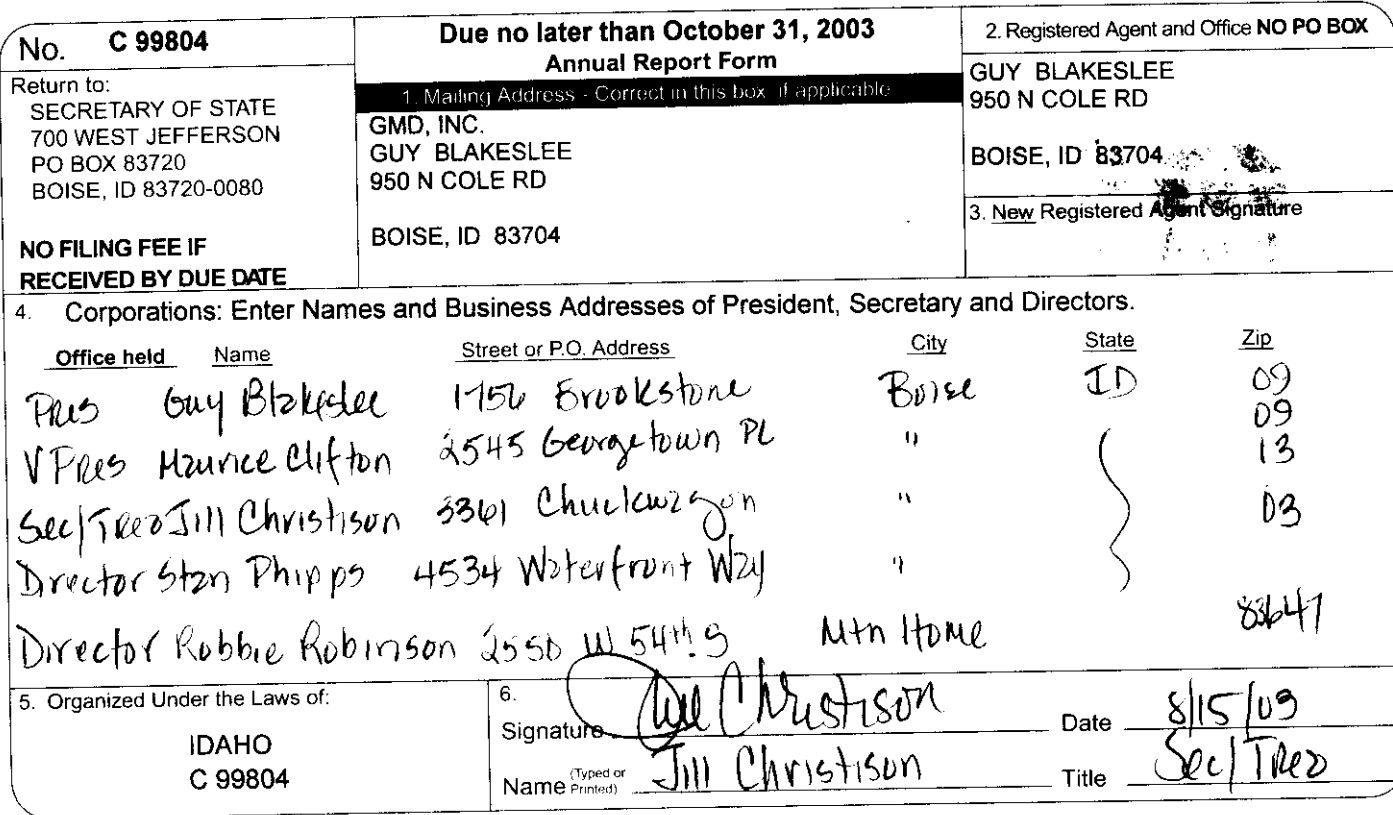 No. C 99804
Return to:
SECRETARY OF STATE
700 WEST JEFFERSON
PO BOX 83720
BOISE, ID 83720-0080
NO FILING FEE IF
RECEIVED BY DUE DATE
Due no later than October 31, 2003
Annual Report Form
1. Mailing Address - Correct in this box if applicable
GMD, INC.
GUY BLAKESLEE
950 N COLE RD
BOISE, ID 83704
2. Registered Agent and Office NO PO BOX
GUY BLAKESLEE
950 N COLE RD
BOISE, ID 83704
3. New Registered Agent Signature
4. Corporations: Enter Names and Business Addresses of President, Secretary and Directors.
Office held Name Street or P.O. Address City State Zip
Pres Guy Blakeslee 1756 Brookstone Boise ID 09
09
V Pres Maurice Clifton 2545 Georgetown PL " 13
Sec/Trea Jill Christison 3361 Chuckwagon " 03
Director Stan Phipps 4534 Waterfront Way "
Director Robbie Robinson 2550 W 54th S Mtn Home 83647
5. Organized Under the Laws of:
IDAHO
C 99804
6.
Signature Jill Christison Date 8/15/03
Name (Typed or Printed) Jill Christison Title Sec/Trea